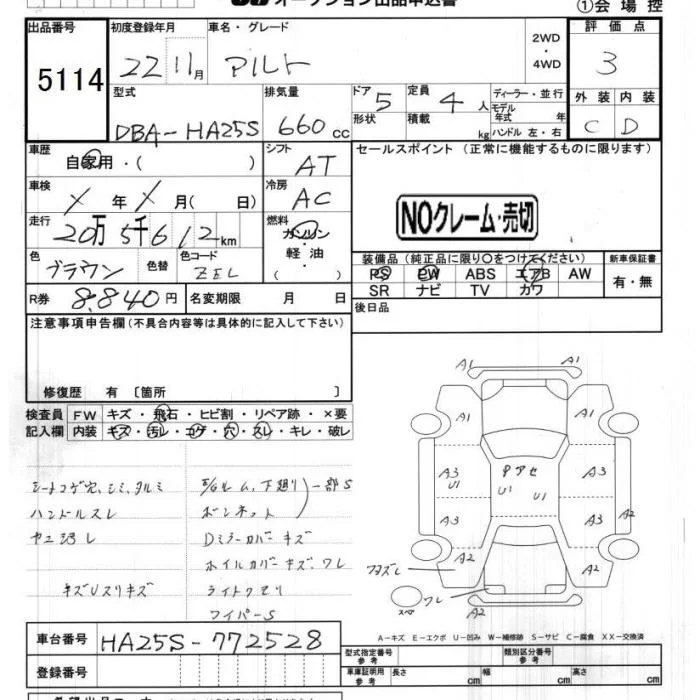 オークション出品申込書
①会場控
出品番号 初度登録年月 車名・グレード 2WD・4WD 評価点
5114 22 11月 アルト 3
型式 排気量 ドア 5 定員 4人 ディーラー・並行 外装 内装
DBA-HA25S 660cc 形状 積載 kg モデル年式 年 ハンドル左・右 C D
車歴 自家用・( ) シフト AT セールスポイント (正常に機能するものに限ります)
車検 X 年 X 月( 日) 冷房 AC
NOクレーム・売切
走行 20万5千612km 燃料 ガソリン・軽油 ( )
色 ブラウン 色替 色コード ZEL
装備品 (純正品に限り○をつけてください) 新車保証書
PS PW ABS エアB AW 有・無
SR ナビ TV カワ
R券 8.840円 名変期限 月 日
後日品
注意事項申告欄(不具合内容等は具体的に記入して下さい)
修復歴 有 〔箇所 〕
検査員 FW キズ・飛石・ヒビ割・リペア跡・×要
記入欄 内装 キズ・汚レ・コゲ・穴・スレ・キレ・破レ
シートコゲ穴、シミ、タルミ
ハンドルスレ
ヤニ汚レ
キズUスリキズ
下廻り 一部S
ボンネット
Dミラーカバーキズ
ホイルカバーキズ、ワレ
ライトクモリ
ワイパーS
A1 A1
A1 A1
A3 U1 アアセ A3
U1 U1
A3 A3 A2
A2 A2
ワレ
スペア
A2
A-キズ E-エクボ U-凹み W-補修跡 S-サビ C-腐食 XX-交換済
車台番号 HA25S-772528
登録番号
型式指定番号 参考 類別区分番号 参考
車庫証明用 参考 長さ cm 幅 cm 高さ cm